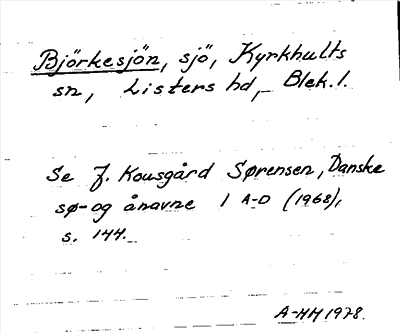 Björkesjön, sjö, Kyrkhults
sn, Listers hd, Blek. l.
Se J. Kousgård Sørensen, Danske
sø- og ånavne 1 A-D (1968),
s. 144.
A-HH 1978.